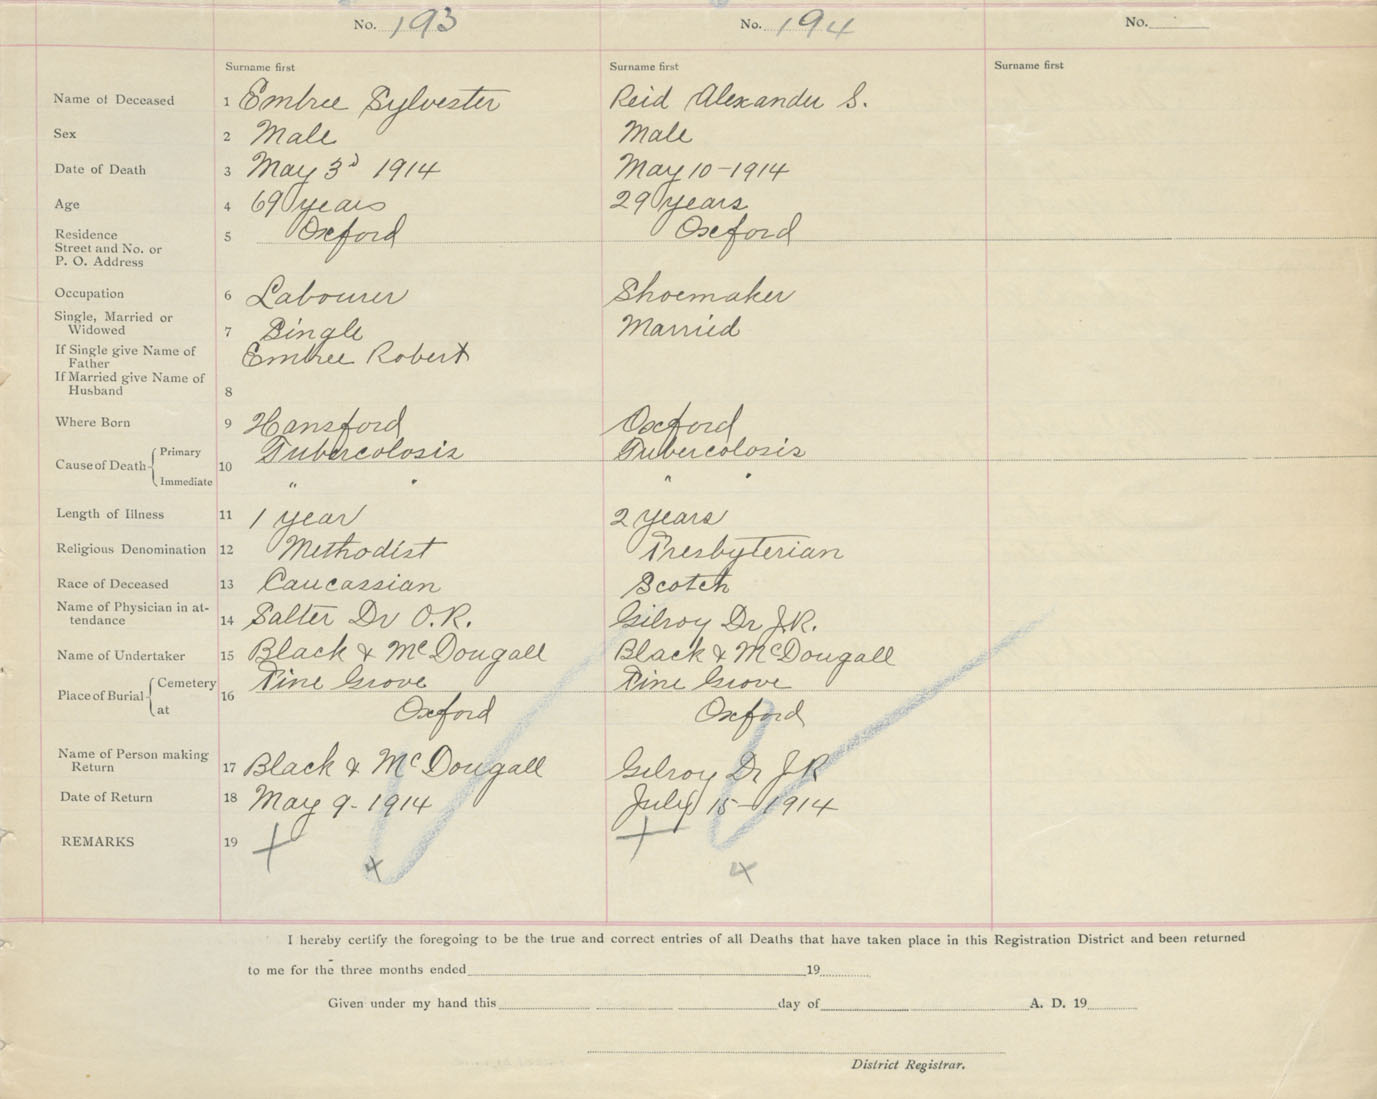 No. 193 No. 194 No.
Surname first Surname first Surname first
Name of Deceased 1 Embree Sylvester Reid Alexander S.
Sex 2 Male Male
Date of Death 3 May 3d 1914 May 10-1914
Age 4 69 years 29 years
Residence
Street and No. or
P. O. Address 5 Oxford Oxford
Occupation 6 Labourer Shoemaker
Single, Married or
Widowed 7 Single Married
If Single give Name of
Father Embree Robert
If Married give Name of
Husband 8
Where Born 9 Hansford Oxford
Cause of Death 10 Primary Tubercolosis Tubercolosis
Immediate " " " "
Length of Illness 11 1 year 2 years
Religious Denomination 12 Methodist Presbyterian
Race of Deceased 13 Caucassian Scotch
Name of Physician in at-
tendance 14 Salter Dr O.R. Gilroy Dr J.R.
Name of Undertaker 15 Black & McDougall Black & McDougall
Place of Burial 16 Cemetery Pine Grove Pine Grove
at Oxford Oxford
Name of Person making
Return 17 Black & McDougall Gilroy Dr J R
Date of Return 18 May 9-1914 July 15-1914
REMARKS 19 + +
x x
I hereby certify the foregoing to be the true and correct entries of all Deaths that have taken place in this Registration District and been returned
to me for the three months ended 19
Given under my hand this day of A. D. 19
District Registrar.